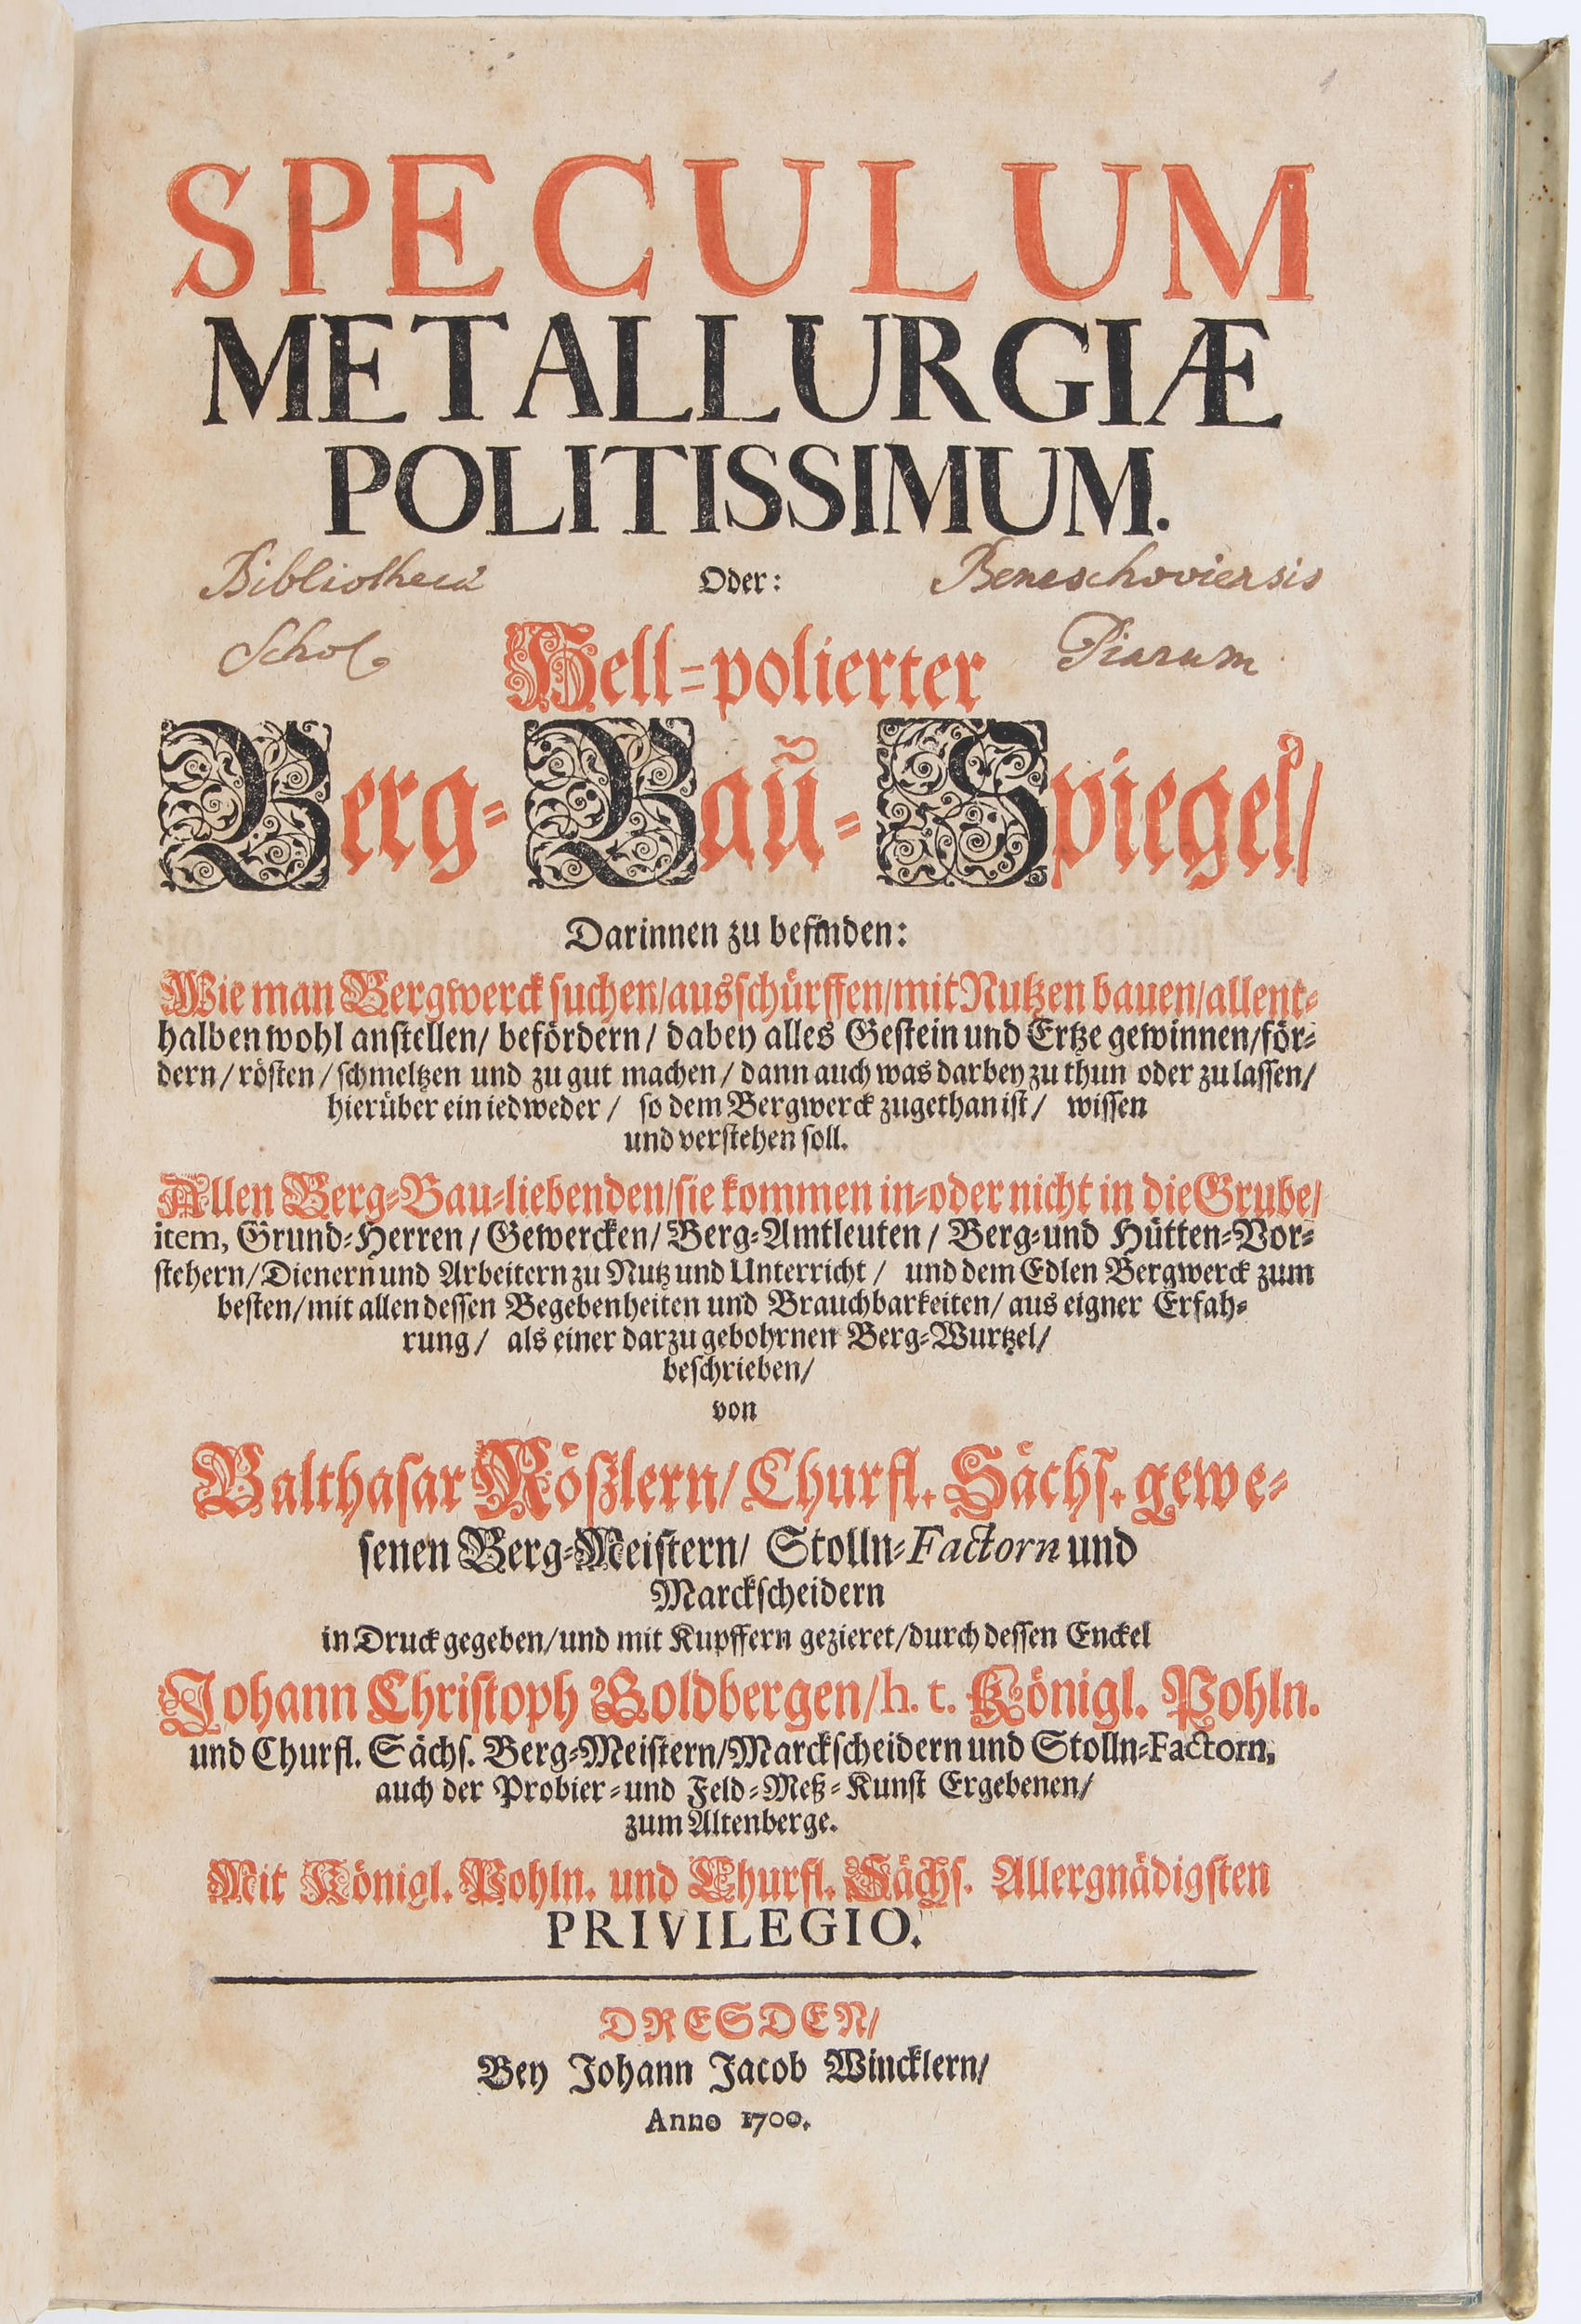 SPECULUM
METALLURGIÆ
POLITISSIMUM.
Bibliotheca Oder: Beneschoviensis
Schol. Piarum
Hell=polierter
Berg=Baũ=Spiegel/
Darinnen zu befinden:
Wie man Bergwerck suchen/ausschürffen/mit Nutzen bauen/allent=
halben wohl anstellen/ befördern/ dabey alles Gestein und Ertze gewinnen/för=
dern/rösten/schmeltzen und zu gut machen/dann auch was darbey zu thun oder zu lassen/
hierüber ein iedweder/ so dem Bergwerck zugethan ist/ wissen
und verstehen soll.
Allen Berg=Bau=liebenden/sie kommen in=oder nicht in die Grube/
item, Grund=Herren/Gewercken/Berg=Amtleuten/Berg=und Hütten=Vor=
stehern/Dienern und Arbeitern zu Nutz und Unterricht/ und dem Edlen Bergwerck zum
besten/mit allen dessen Begebenheiten und Brauchbarkeiten/aus eigner Erfah=
rung/ als einer darzu gebohrnen Berg=Wurtzel/
beschrieben/
von
Balthasar Rößlern/Churfl. Sächs. gewe=
senen Berg=Meistern/ Stolln=Factorn und
Marckscheidern
in Druck gegeben/und mit Kupffern gezieret/durch dessen Enckel
Johann Christoph Goldbergen/h. t. Königl. Pohln.
und Churfl. Sächs. Berg=Meistern/Marckscheidern und Stolln=Factorn,
auch der Probier=und Feld=Meß=Kunst Ergebenen/
zum Altenberge.
Mit Königl. Pohln. und Churfl. Sächs. Allergnädigsten
PRIVILEGIO.
DRESDEN/
Bey Johann Jacob Wincklern/
Anno 1700.